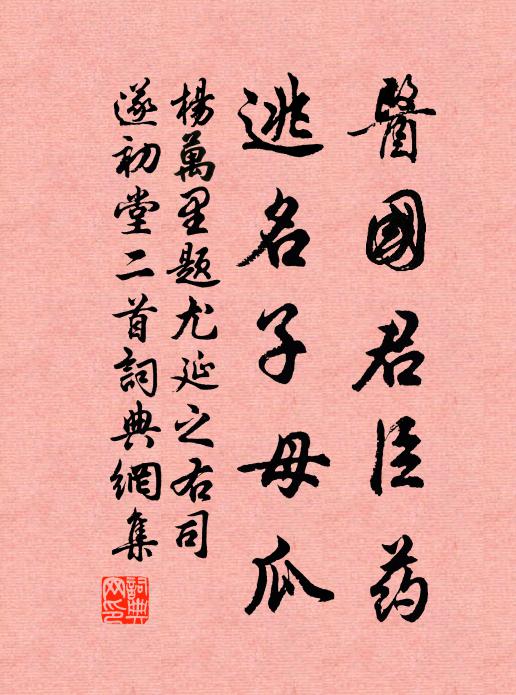 醫國君臣药
逃名子母瓜
楊萬里題尤延之右司
遂初堂二首詞典網集
詞典網印